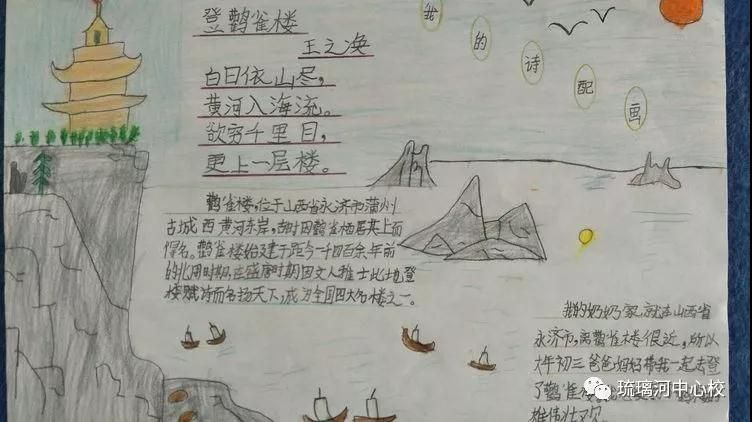 登鹳雀楼
王之涣
白日依山尽,
黄河入海流。
欲穷千里目,
更上一层楼。
我的诗配画
鹳雀楼,位于山西省永济市蒲州
古城西黄河东岸,古时因鹳雀栖居其上而
得名。鹳雀楼始建于距今一千四百余年前
的北周时期,在盛唐时期因文人雅士此地登
楼赋诗而名扬天下,成为全国四大名楼之一。
我的奶奶家就在山西省
永济市,离鹳雀楼很近,所以
大年初三爸爸妈妈带我一起去登
了鹳雀
雄伟壮观
琉璃河中心校